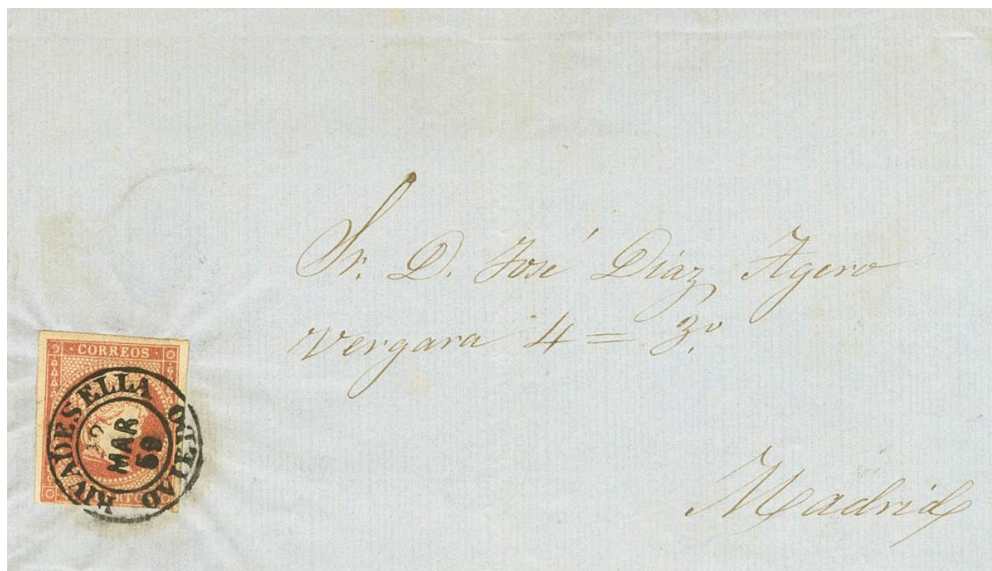 Sr. D. José Diaz Agero
Vergara 4 = 3º
Madrid
CORREOS
RIVADESELLA
OVIEDO
MAR
59